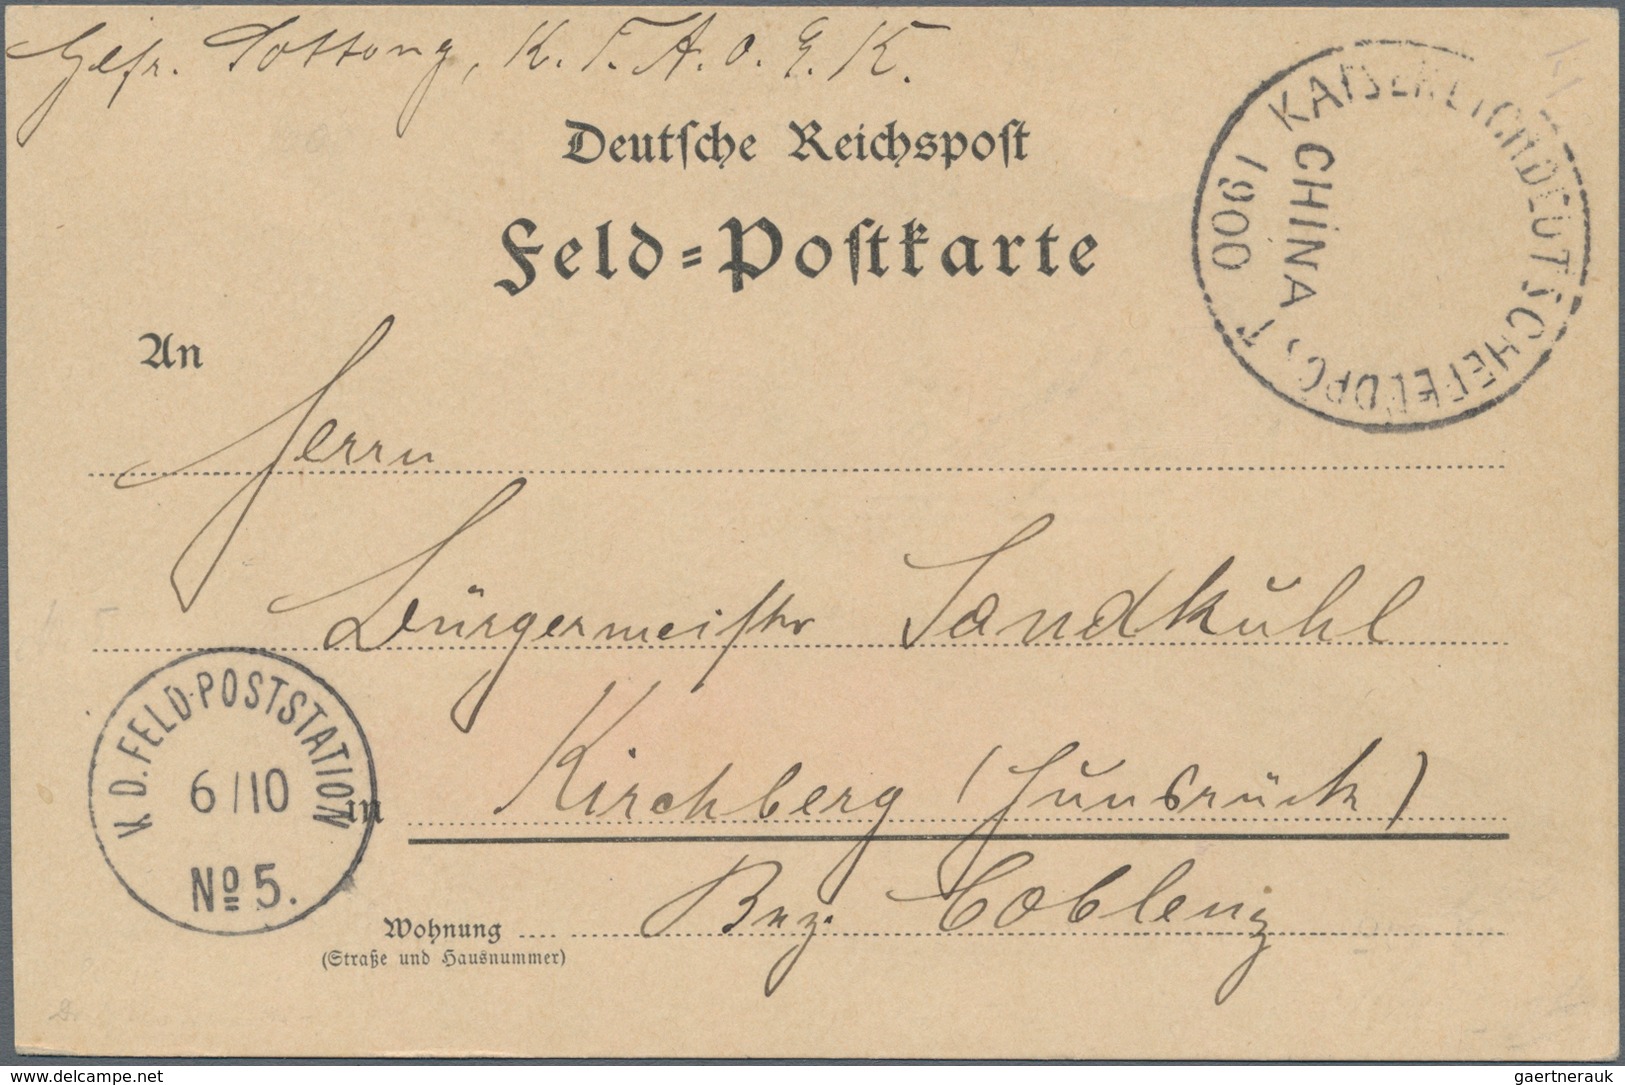 Gefr. Tottong, K. F. A. O. E. K.
KAISERLICH DEUTSCHE FELDPOST
CHINA
1900
Deutsche Reichspost
Feld=Postkarte
An
Herrn
Bürgermeister Sandkuhl
K. D. FELD-POSTSTATION
6/10
No 5.
in Kirchberg (Hunsrück)
Bez. Coblenz
Wohnung
(Straße und Hausnummer)
www.delcampe.net
gaertnerauk